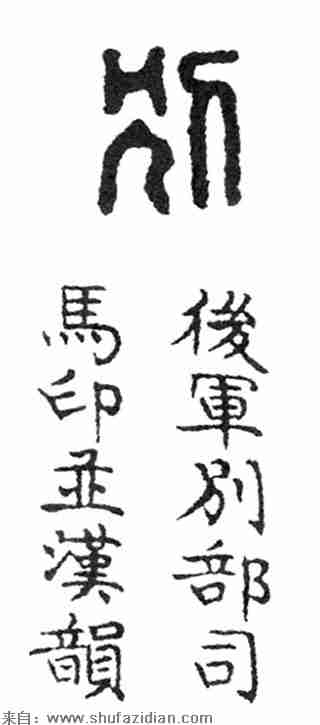 別
後軍別部司
馬印並漢韻
来自：www.shufazidian.com